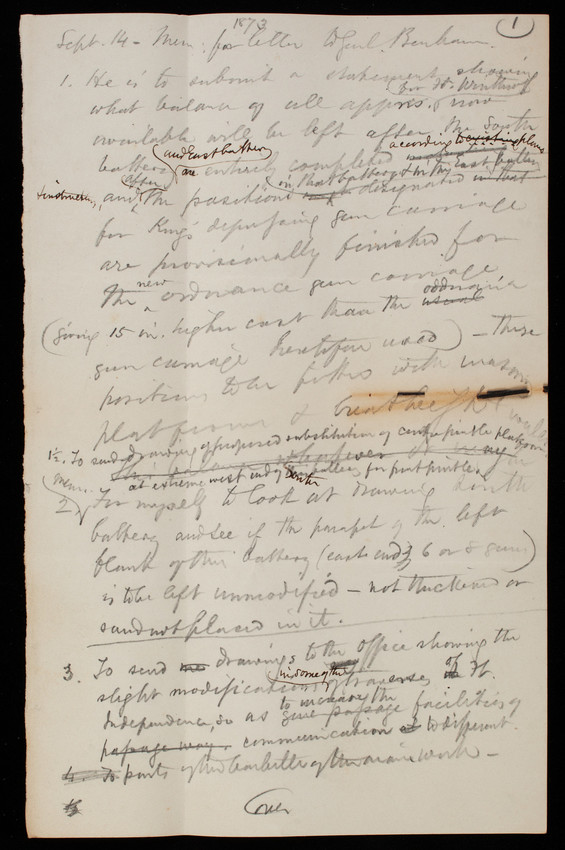 1
1873
Sept. 14 - Mem: for letter to Genl. Benham.
1. He is to submit a statement showing
for Ft. Winthrop
what balance of all apprs. now
available will be left after the South
battery and East battery are entirely completed according to existing plans
instructions, and after the positions in that battery & in the East battery designated in that
for King's depressing gun carriage
are provisionally finished for
the new ordnance gun carriage
(giving 15 in. higher than the ordinary usual
gun carriage heretofore used) - these
positions to be fitted with
platforms & breast height
1½. To send drawing of proposed substitution of centre pintle platform
at extreme west end of South battery for front pintle.
Mem.
2. For myself to look at drawing South
battery and see if the parapet of the left
flank of this battery (east end of 6 or 8 guns)
is to be left unmodified - not thickened or
sand not placed in it.
3. To send me drawings to the office showing the
slight modifications in some of the traverses of Ft.
Independence, so as to increase the give passage facilities of
passage way. communication to different
4. To parts of the barbette of the main work -
Over